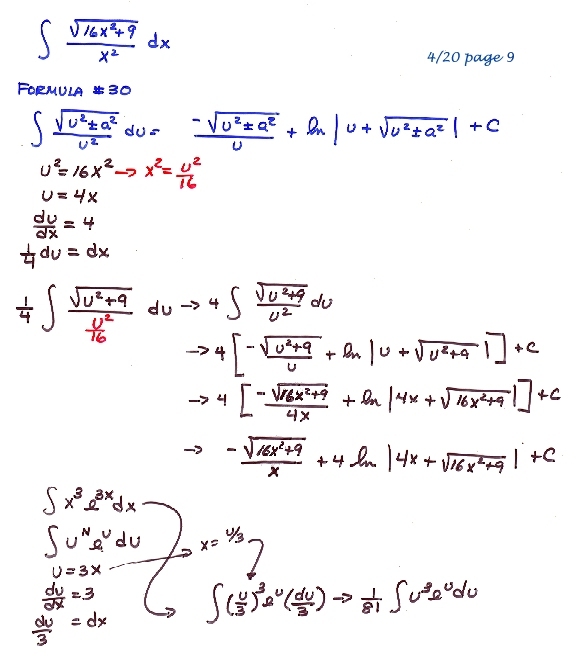 ∫ √(16x²+9) / x² dx
4/20 page 9
FORMULA #30
∫ √(u²±a²) / u² du = -√(u²±a²) / u + ln |u + √(u²±a²)| + C
u² = 16x² → x² = u²/16
u = 4x
du/dx = 4
1/4 du = dx
1/4 ∫ √(u²+9) / (u²/16) du → 4 ∫ √(u²+9) / u² du
→ 4 [ -√(u²+9) / u + ln |u + √(u²+9)| ] + C
→ 4 [ -√(16x²+9) / 4x + ln |4x + √(16x²+9)| ] + C
→ -√(16x²+9) / x + 4 ln |4x + √(16x²+9)| + C
∫ x³ e^(3x) dx
∫ u^N e^u du
x = u/3
u = 3x
du/dx = 3
∫ (u/3)³ e^u (du/3) → 1/81 ∫ u³ e^u du
du/3 = dx